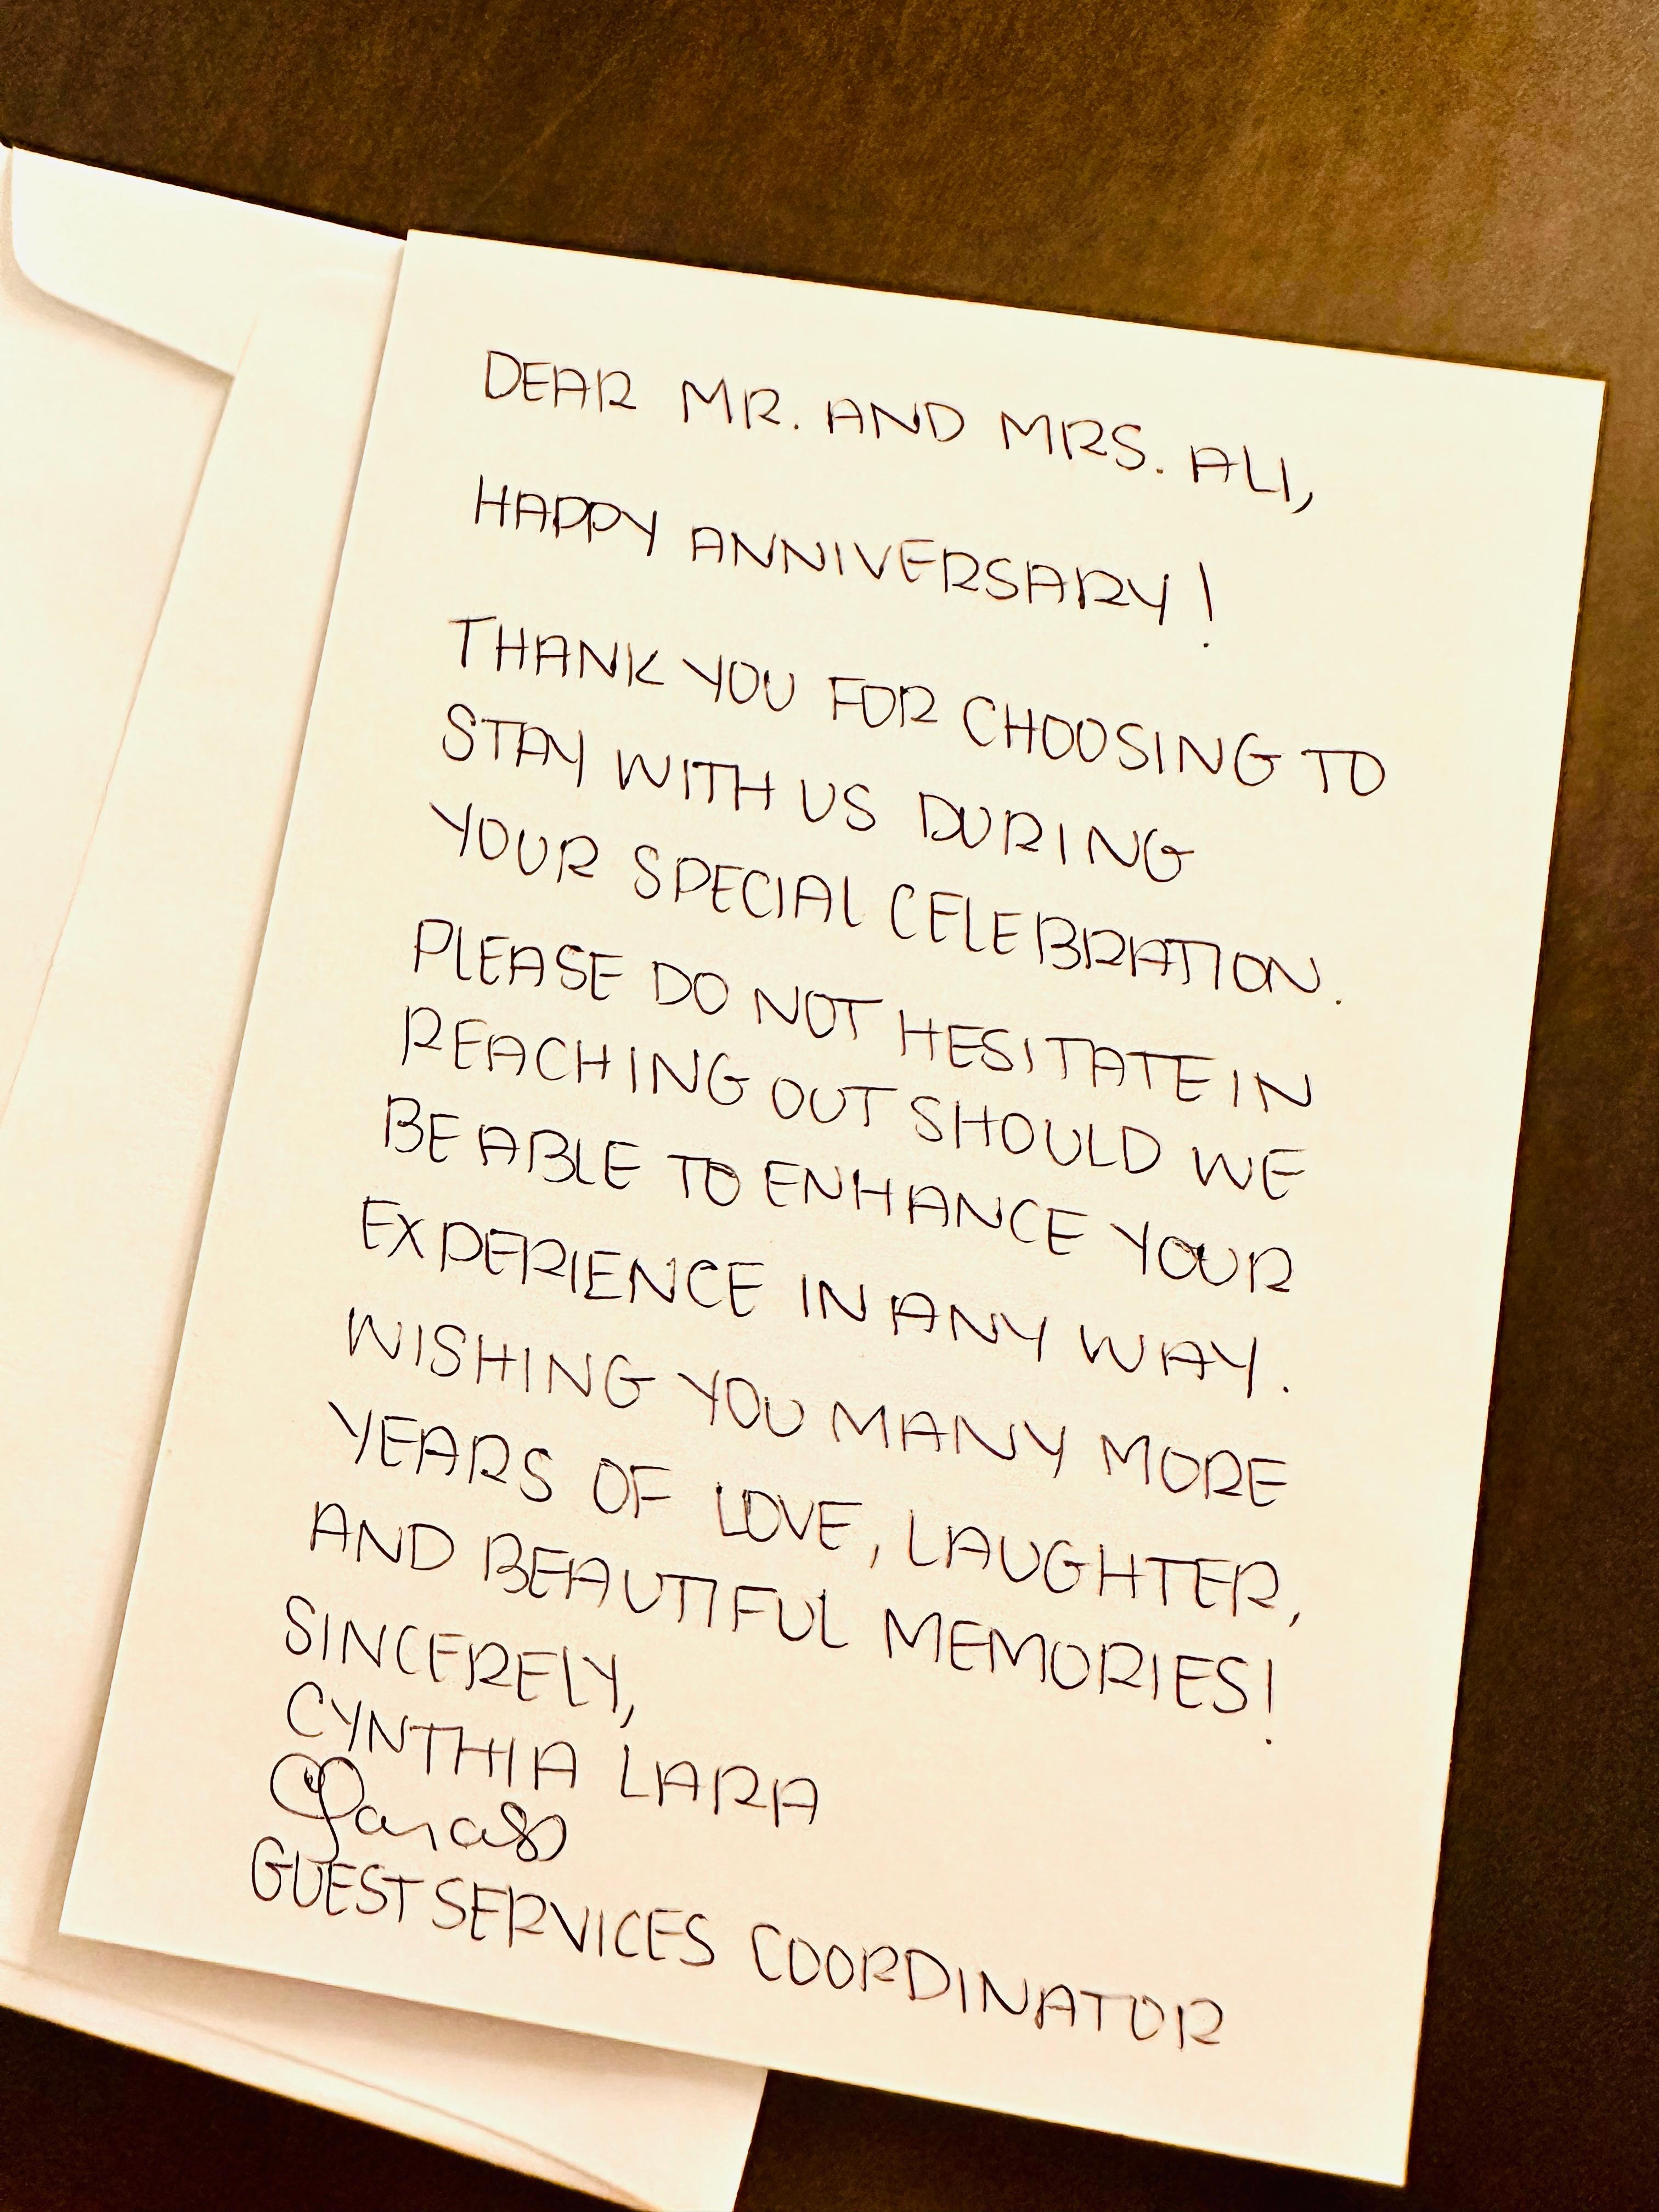 DEAR MR. AND MRS. ALI,
HAPPY ANNIVERSARY!
THANK YOU FOR CHOOSING TO
STAY WITH US DURING
YOUR SPECIAL CELEBRATION.
PLEASE DO NOT HESITATE IN
REACHING OUT SHOULD WE
BE ABLE TO ENHANCE YOUR
EXPERIENCE IN ANY WAY.
WISHING YOU MANY MORE
YEARS OF LOVE, LAUGHTER,
AND BEAUTIFUL MEMORIES!
SINCERELY,
CYNTHIA LARA
GUEST SERVICES COORDINATOR